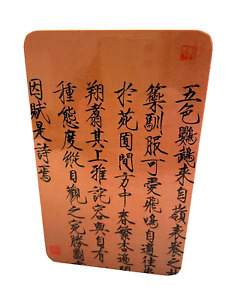 五色鸚鵡來自嶺表養之
籞馴服可愛飛鳴自適往來
於苑囿間方中春繁杏遍開
翔翥其上雅詫容與自有
種態度縱目觀之宛勝圖
因賦是詩焉